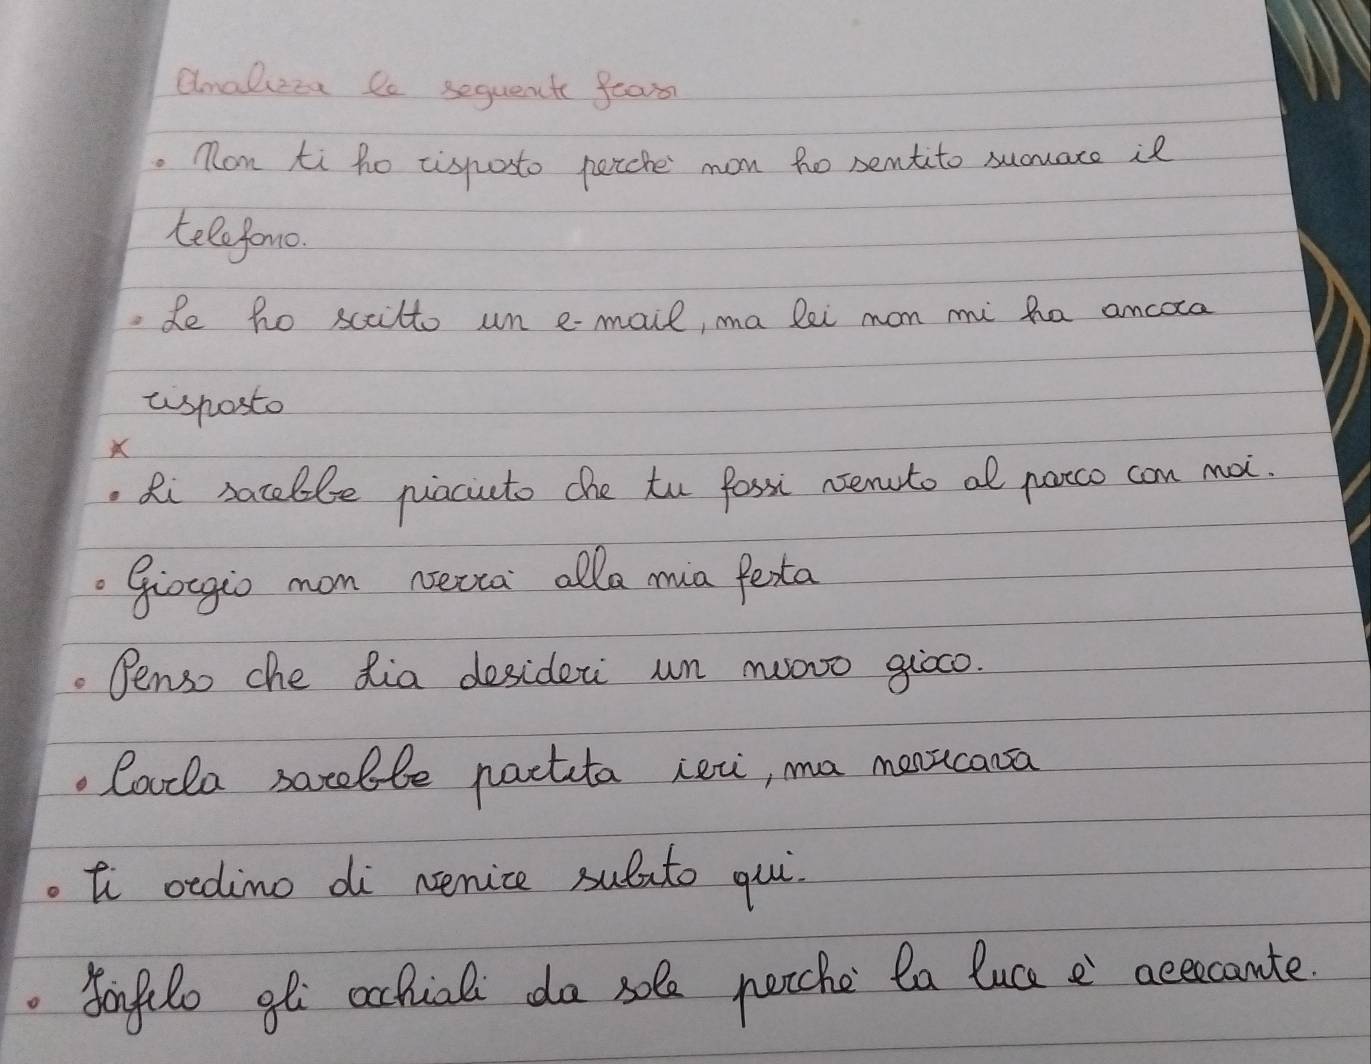 Analizza le seguenti frasi
• Non ti ho risposto perchè non ho sentito suonare il
telefono.
• Le ho scritto un e-mail, ma lei non mi ha ancora
risposto
x
• Li sarebbe piaciuto che tu fossi venuto al parco con noi.
• Giorgio non verrà alla mia festa
• Penso che Lia desideri un nuovo gioco.
• Carla sarebbe partita ieri, ma nevicava
• Ti ordino di venire subito qui.
• Infilo gli occhiali da sole perchè la luce è accecante.